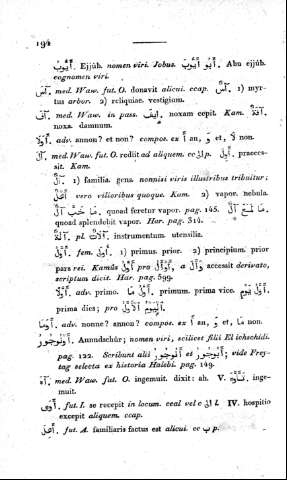 192
أَيُّوبُ. Ejjúb. nomen viri. Iobus. أَبُو أَيُّوبَ. Abu ejjúb.
cognomen viri.
آسَ. med. Waw. fut. O. donavit alicui. ccap. آسٌ. 1) myr-
tus arbor. 2) reliquiae. vestigium.
آفَ. med. Waw. in pass. إِيفَ. noxam cepit. Kam. آفَةٌ.
noxa. damnum.
أَوَلَا. adv. annon? et non? compos. ex أَ an, وَ et, لَا non.
آلَ. med. Waw. fut. O. rediit ad aliquem. cc إلى p. أَوِلَ. praeces-
sit. Kam.
آلٌ. 1) familia. gens. nonnisi viris illustribus tribuitur;
أَهْلٌ vero vilioribus quoque. Kam. 2) vapor. nebula.
مَا خَبَّ آلٌ. quoad feretur vapor. pag. 145. مَا لَمَعَ آلٌ.
quoad splendebit vapor. Har. pag. 310.
آلَةٌ. pl. آلَاتٌ. instrumentum. utensilia.
أَوَّلُ. fem. أُولَى. 1) primus. prior. 2) principium. prior
pars rei. Kamûs أَوَّلُ pro أَوْأَلُ, وَأَلَ a accessit derivato,
scriptum dicit. Har. pag. 599.
أَوَّلًا. adv. primo. أَوَّلَ مَا. primum. prima vice. أَوَّلَ يَوْمٍ.
prima dies; pro اليَوْمُ الأَوَّلُ.
أَوَمَا. adv. nonne? annon? compos. ex أَ an, وَ et, مَا non.
أُونُوجُورُ. Aunudschûr; nomen viri, scilicet filii El ichschidi.
pag. 122. Scribunt alii أَنُوجُور et أَبُوجُور; vide Frey-
tag selecta ex historia Halebi. pag. 149.
آهَ. med. Waw. fut. O. ingemuit. dixit: ah. V. تَأَوَّهَ. inge-
muit.
أَوَى. fut. I. se recepit in locum. ccal vel c إلى l. IV. hospitio
excepit aliquem. ccap.
أَهِلَ. fut. A. familiaris factus est alicui. cc ب p.